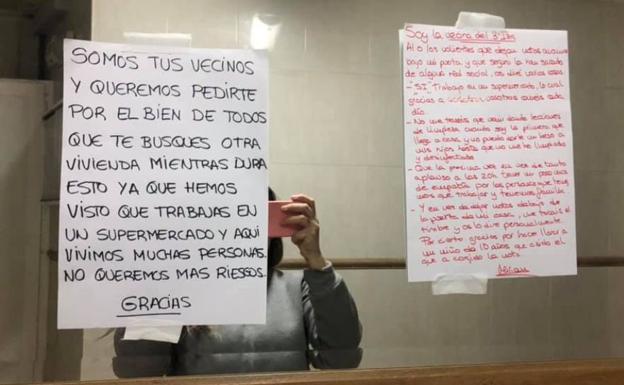 SOMOS TUS VECINOS
Y QUEREMOS PEDIRTE
POR EL BIEN DE TODOS
QUE TE BUSQUES OTRA
VIVIENDA MIENTRAS DURA
ESTO YA QUE HEMOS
VISTO QUE TRABAJAS EN
UN SUPERMERCADO Y AQUI
VIVIMOS MUCHAS PERSONAS.
NO QUEREMOS MAS RIESGOS.
GRACIAS
Soy la vecina del 3º
Al o los valientes que dejan notas
bajo mi puerta, y que seguro la han sacado
de alguna red social, os diré varias cosas.
- "SI" Trabajo en un supermercado, lo cual
gracias a vosotros cada
día.
- No me tenéis que venir dando lecciones
de limpieza cuando soy la primera que
llega a casa y no puedo darle un beso a
mis hijos hasta que no me he limpiado
y desinfectado
- Que la próxima vez en vez de tanto
aplauso a las 20h tener un poco mas
de empatia por las personas que tienen
que trabajar y tenemos familia.
- Y en vez de dejar notas debajo de
la puerta de mi casa, me tocais el
timbre y os lo dire personalmente
Por cierto gracias por hacer llorar a
un niño de 10 años que a sido el
que a cogido la nota.
Miriam